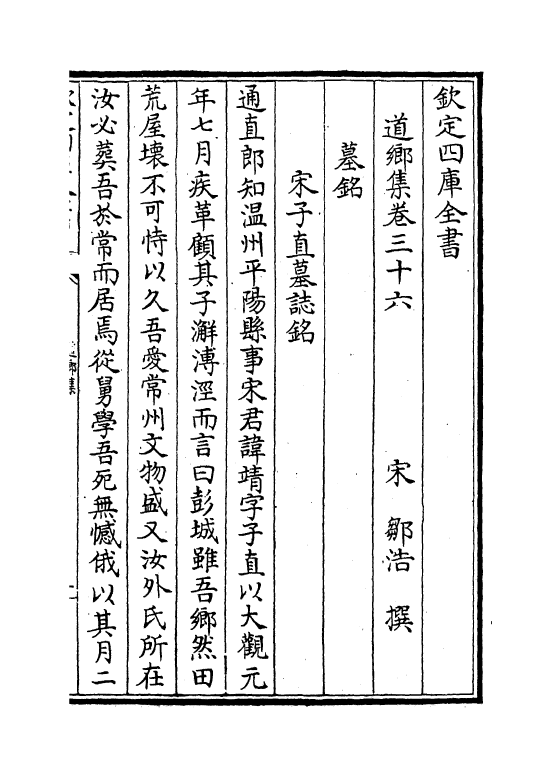 欽定四庫全書
道鄉集卷三十六　　　　宋　鄒浩　撰
墓銘
宋子直墓誌銘
通直郎知温州平陽縣事宋君諱靖字子直以大觀元
年七月疾革顧其子澥漙涇而言曰彭城雖吾鄉然田
荒屋壊不可恃以久吾愛常州文物盛又汝外氏所在
汝必葬吾於常而居焉從舅學吾死無憾俄以其月二